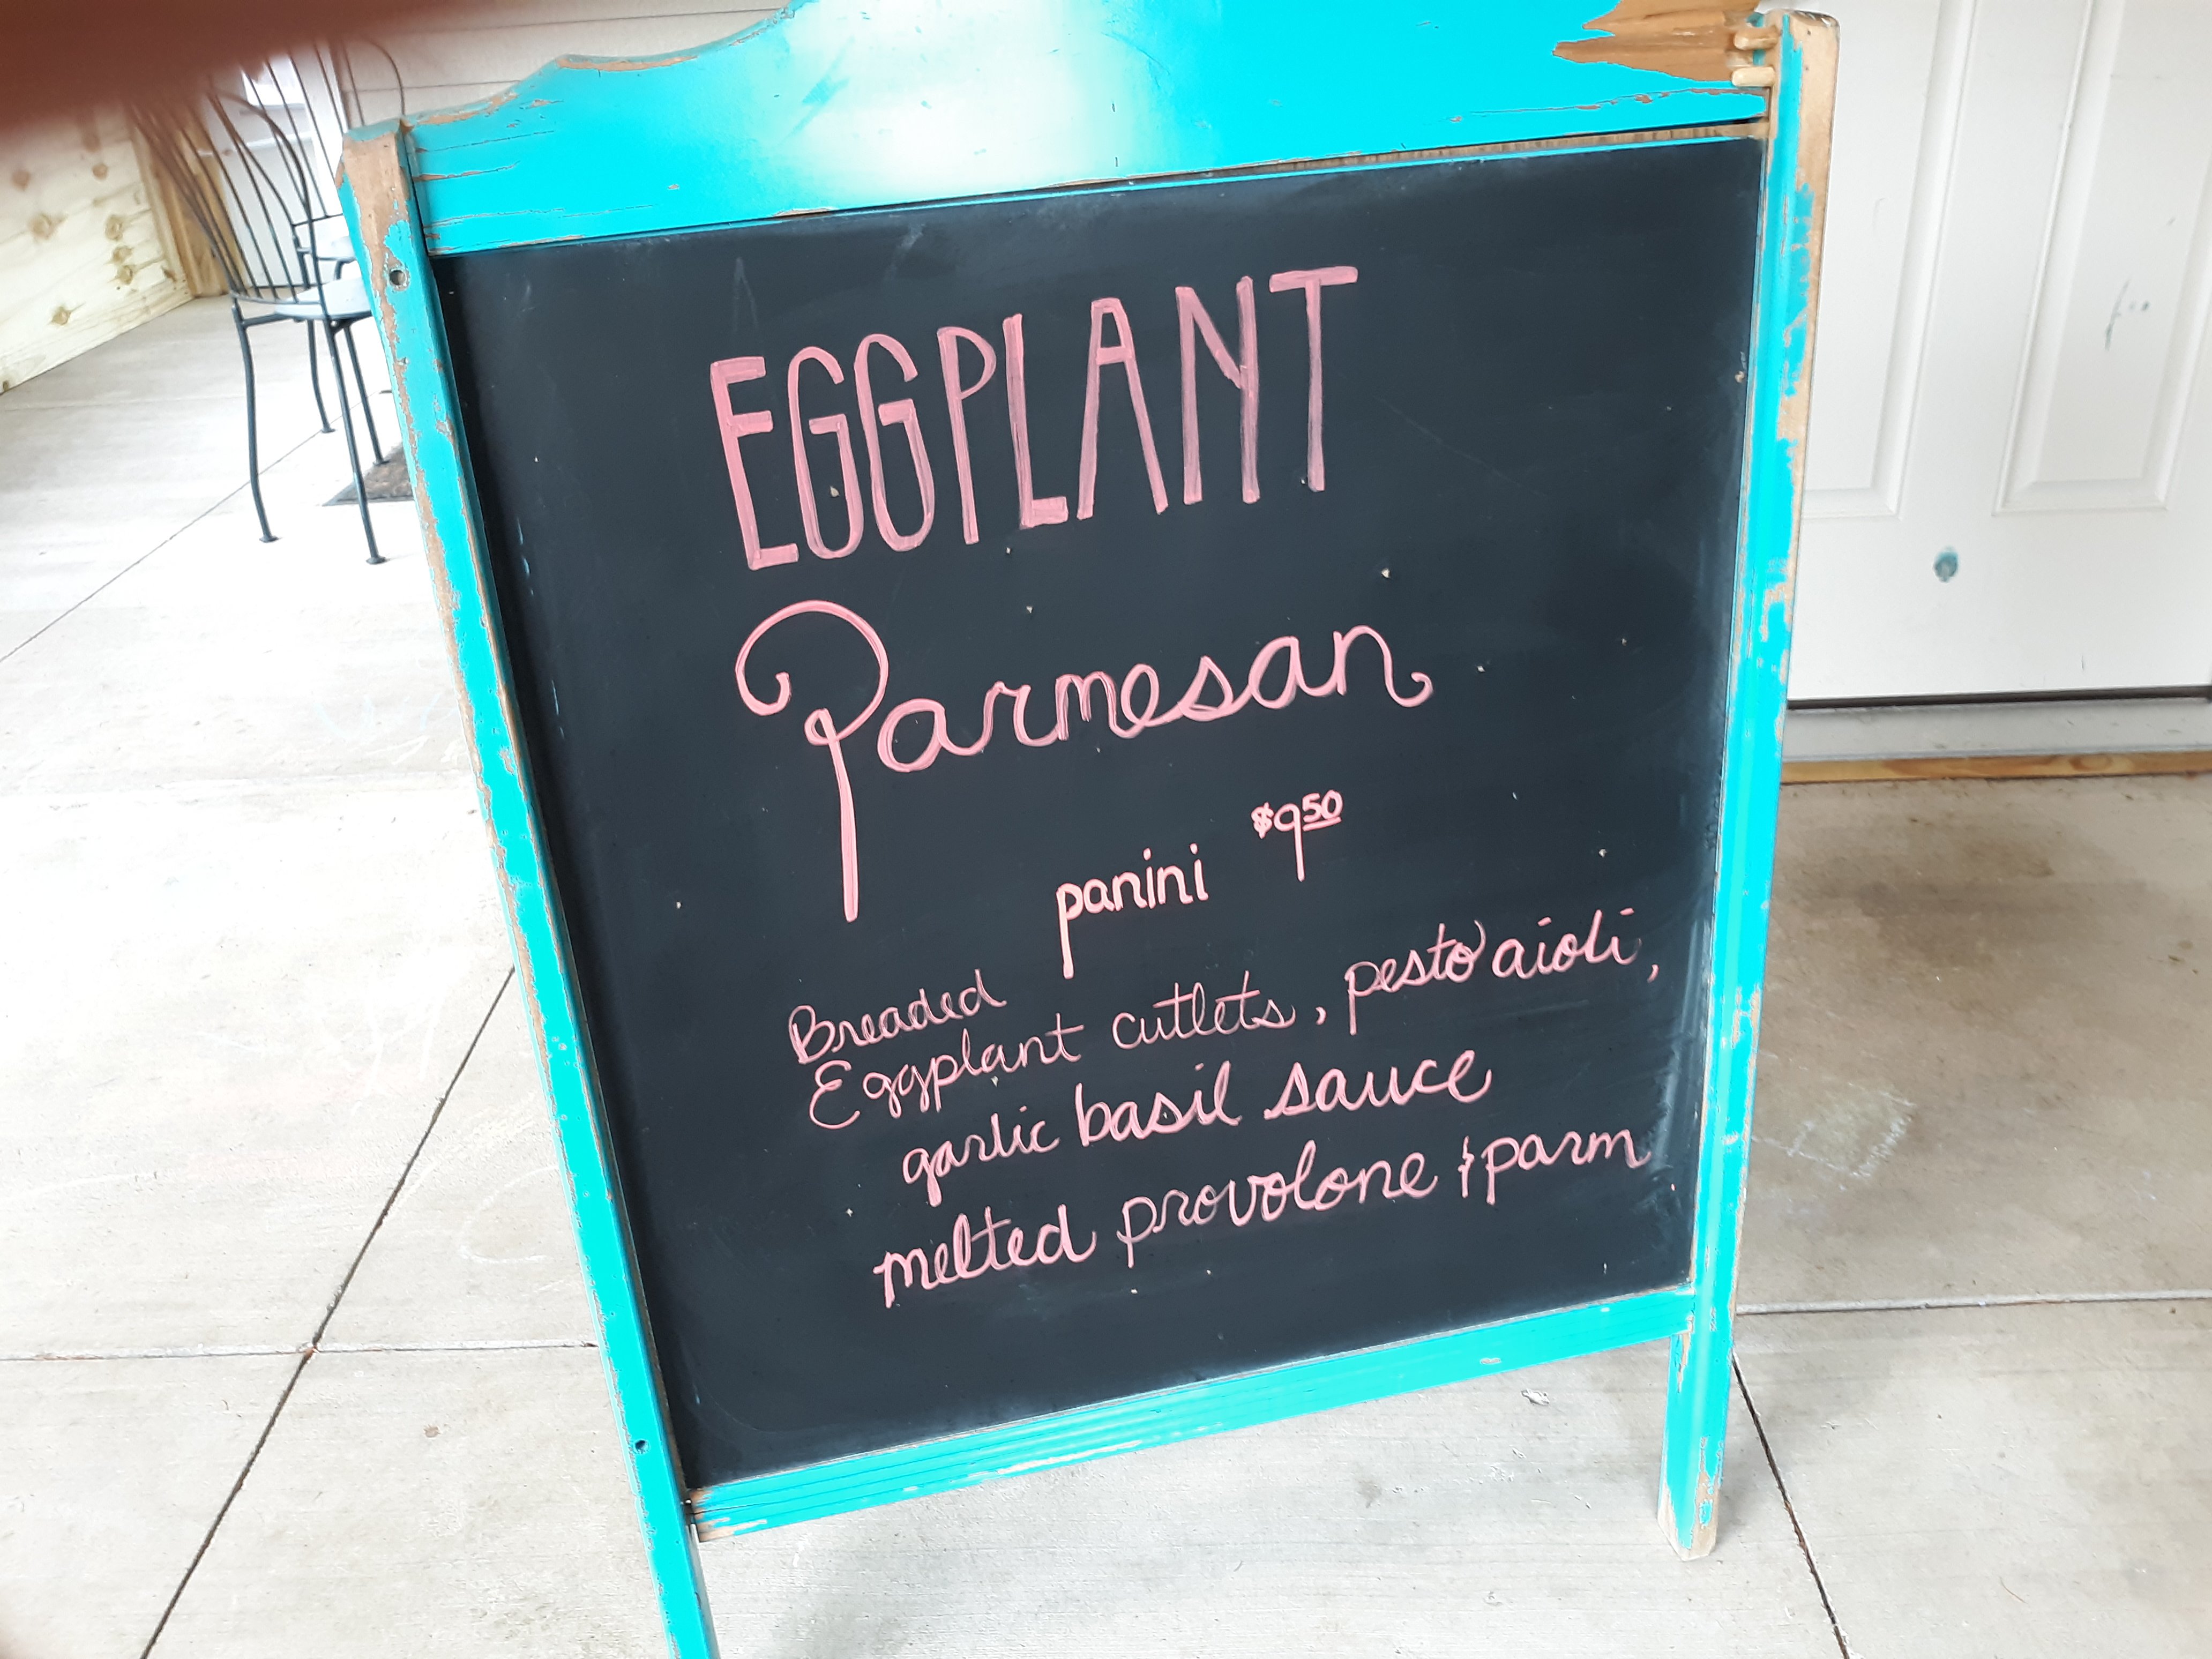 EGGPLANT
Parmesan
panini $9.50
Breaded
Eggplant cutlets, pesto aioli,
garlic basil sauce
melted provolone & parm